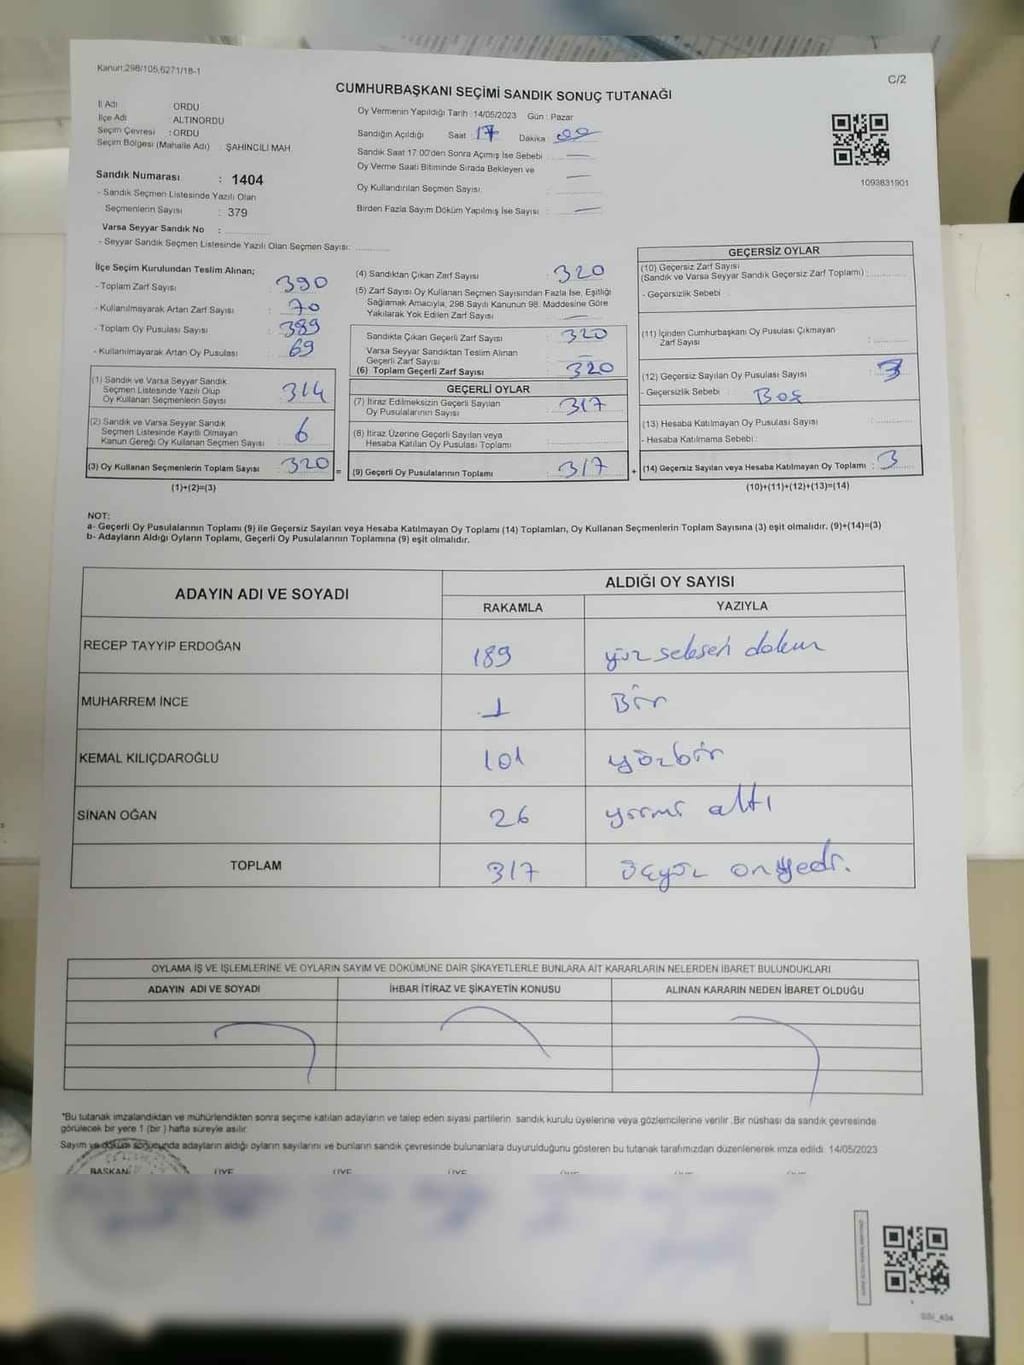 Kanun:298/105,6271/18-1
C/2
CUMHURBAŞKANI SEÇİMİ SANDIK SONUÇ TUTANAĞI
İl Adı : ORDU
İlçe Adı : ALTINORDU
Seçim Çevresi : ORDU
Seçim Bölgesi (Mahalle Adı) : ŞAHİNCİLİ MAH.
Sandık Numarası : 1404
- Sandık Seçmen Listesinde Yazılı Olan
Seçmenlerin Sayısı : 379
Varsa Seyyar Sandık No :
- Seyyar Sandık Seçmen Listesinde Yazılı Olan Seçmen Sayısı:
Oy Vermenin Yapıldığı Tarih : 14/05/2023 Gün : Pazar
Sandığın Açıldığı Saat : 17 Dakika : 00
Sandık Saat 17:00'den Sonra Açımış İse Sebebi : —
Oy Verme Saati Bitiminde Sırada Bekleyen ve
Oy Kullandırılan Seçmen Sayısı: —
Birden Fazla Sayım Döküm Yapılmış İse Sayısı : —
1093831901
İlçe Seçim Kurulundan Teslim Alınan;
- Toplam Zarf Sayısı : 390
- Kullanılmayarak Artan Zarf Sayısı : 70
- Toplam Oy Pusulası Sayısı : 389
- Kullanılmayarak Artan Oy Pusulası : 69
(1) Sandık ve Varsa Seyyar Sandık
Seçmen Listesinde Yazılı Olup
Oy Kullanan Seçmenlerin Sayısı : 314
(2) Sandık ve Varsa Seyyar Sandık
Seçmen Listesinde Kayıtlı Olmayan
Kanun Gereği Oy Kullanan Seçmen Sayısı : 6
(3) Oy Kullanan Seçmenlerin Toplam Sayısı : 320 =
(1)+(2)=(3)
(4) Sandıktan Çıkan Zarf Sayısı : 320
(5) Zarf Sayısı Oy Kullanan Seçmen Sayısından Fazla İse, Eşitliği
Sağlamak Amacıyla, 298 Sayılı Kanunun 98. Maddesine Göre
Yakılarak Yok Edilen Zarf Sayısı : —
Sandıkta Çıkan Geçerli Zarf Sayısı : 320
Varsa Seyyar Sandıktan Teslim Alınan
Geçerli Zarf Sayısı : —
(6) Toplam Geçerli Zarf Sayısı : 320
GEÇERLİ OYLAR
(7) İtiraz Edilmeksizin Geçerli Sayılan
Oy Pusulalarının Sayısı : 317
(8) İtiraz Üzerine Geçerli Sayılan veya
Hesaba Katılan Oy Pusulası Toplamı :
(9) Geçerli Oy Pusulalarının Toplamı : 317 +
GEÇERSİZ OYLAR
(10) Geçersiz Zarf Sayısı
(Sandık ve Varsa Seyyar Sandık Geçersiz Zarf Toplamı) :
- Geçersizlik Sebebi :
(11) İçinden Cumhurbaşkanı Oy Pusulası Çıkmayan
Zarf Sayısı :
(12) Geçersiz Sayılan Oy Pusulası Sayısı : 3
- Geçersizlik Sebebi : Boş
(13) Hesaba Katılmayan Oy Pusulası Sayısı :
- Hesaba Katılmama Sebebi :
(14) Geçersiz Sayılan veya Hesaba Katılmayan Oy Toplamı : 3
(10)+(11)+(12)+(13)=(14)
NOT:
a- Geçerli Oy Pusulalarının Toplamı (9) ile Geçersiz Sayılan veya Hesaba Katılmayan Oy Toplamı (14) Toplamları, Oy Kullanan Seçmenlerin Toplam Sayısına (3) eşit olmalıdır. (9)+(14)=(3)
b- Adayların Aldığı Oyların Toplamı, Geçerli Oy Pusulalarının Toplamına (9) eşit olmalıdır.
ADAYIN ADI VE SOYADI
ALDIĞI OY SAYISI
RAKAMLA YAZIYLA
RECEP TAYYİP ERDOĞAN 189 yüz seksen dokuz
MUHARREM İNCE 1 Bir
KEMAL KILIÇDAROĞLU 101 yüzbir
SİNAN OĞAN 26 yirmi altı
TOPLAM 317 üçyüz onyedi.
OYLAMA İŞ VE İŞLEMLERİNE VE OYLARIN SAYIM VE DÖKÜMÜNE DAİR ŞİKAYETLERLE BUNLARA AİT KARARLARIN NELERDEN İBARET BULUNDUKLARI
ADAYIN ADI VE SOYADI İHBAR İTİRAZ VE ŞİKAYETİN KONUSU ALINAN KARARIN NEDEN İBARET OLDUĞU
*Bu tutanak imzalandıktan ve mühürlendikten sonra seçime katılan adayların ve talep eden siyasi partilerin sandık kurulu üyelerine veya gözlemcilerine verilir. Bir nüshası da sandık çevresinde
görülecek bir yere 1 (bir ) hafta süreyle asılır.
Sayım ve döküm sonucunda adayların aldığı oyların sayılarını ve bunların sandık çevresinde bulunanlara duyurulduğunu gösteren bu tutanak tarafımızdan düzenlenerek imza edildi. 14/05/2023
BAŞKAN ÜYE ÜYE ÜYE